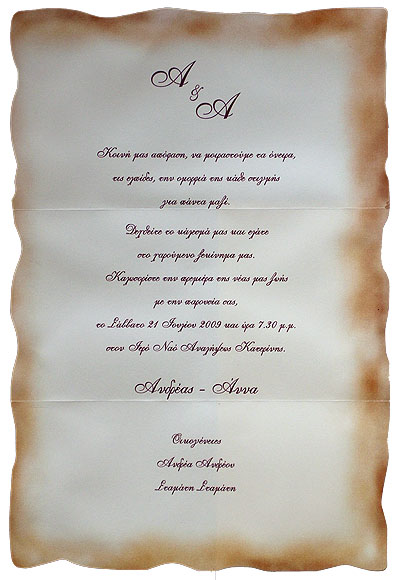 Α
&
Α
Κοινή μας απόφαση, να μοιραστούμε τα όνειρα,
τις ελπίδες, την ομορφιά της κάθε στιγμής
για πάντα μαζί.
Δεχθείτε το κάλεσμά μας και ελάτε
στο χαρούμενο ξεκίνημα μας.
Καλωσορίστε την πρεμιέρα της νέας μας ζωής
με την παρουσία σας,
το Σάββατο 21 Ιουνίου 2009 και ώρα 7.30 μ.μ.
στον Ιερό Ναό Αναλήψεως Κατερίνης.
Ανδρέας - Άννα
Οικογένειες
Ανδρέα Ανδρέου
Σταμάτη Σταμάτη